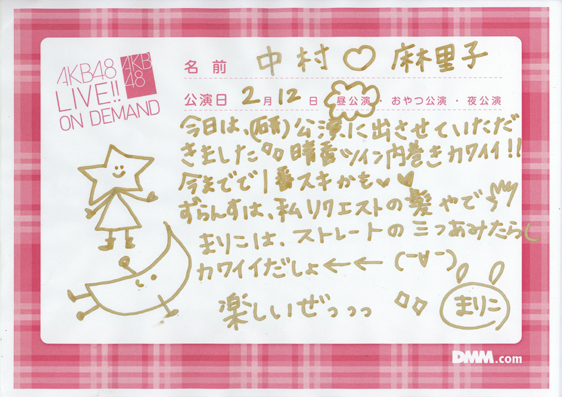 AKB48
LIVE!!
ON DEMAND
AKB
48
名前 中村♡麻里子
公演日 2月12日 昼公演・おやつ公演・夜公演
今日は、(研)公演に出させていただ
きました 晴香ツイン内巻きカワイイ!!
今までで1番スキかも♥♥
ずらんずは、私リクエストの髪やで
まりこは、ストレートの三つあみたらし
カワイイだしょ←←
楽しいぜっっっ
まりこ
DMM.com